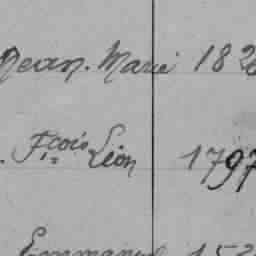 Jean. Marie 182
. Fçois Léon 1797
Emmanuel 152